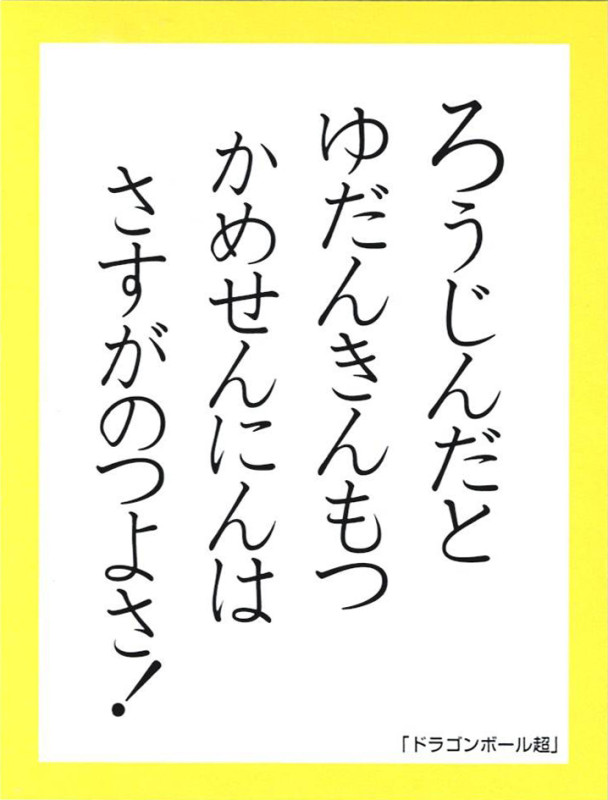 ろうじんだと
ゆだんきんもつ
かめせんにんは
さすがのつよさ！
「ドラゴンボール超」